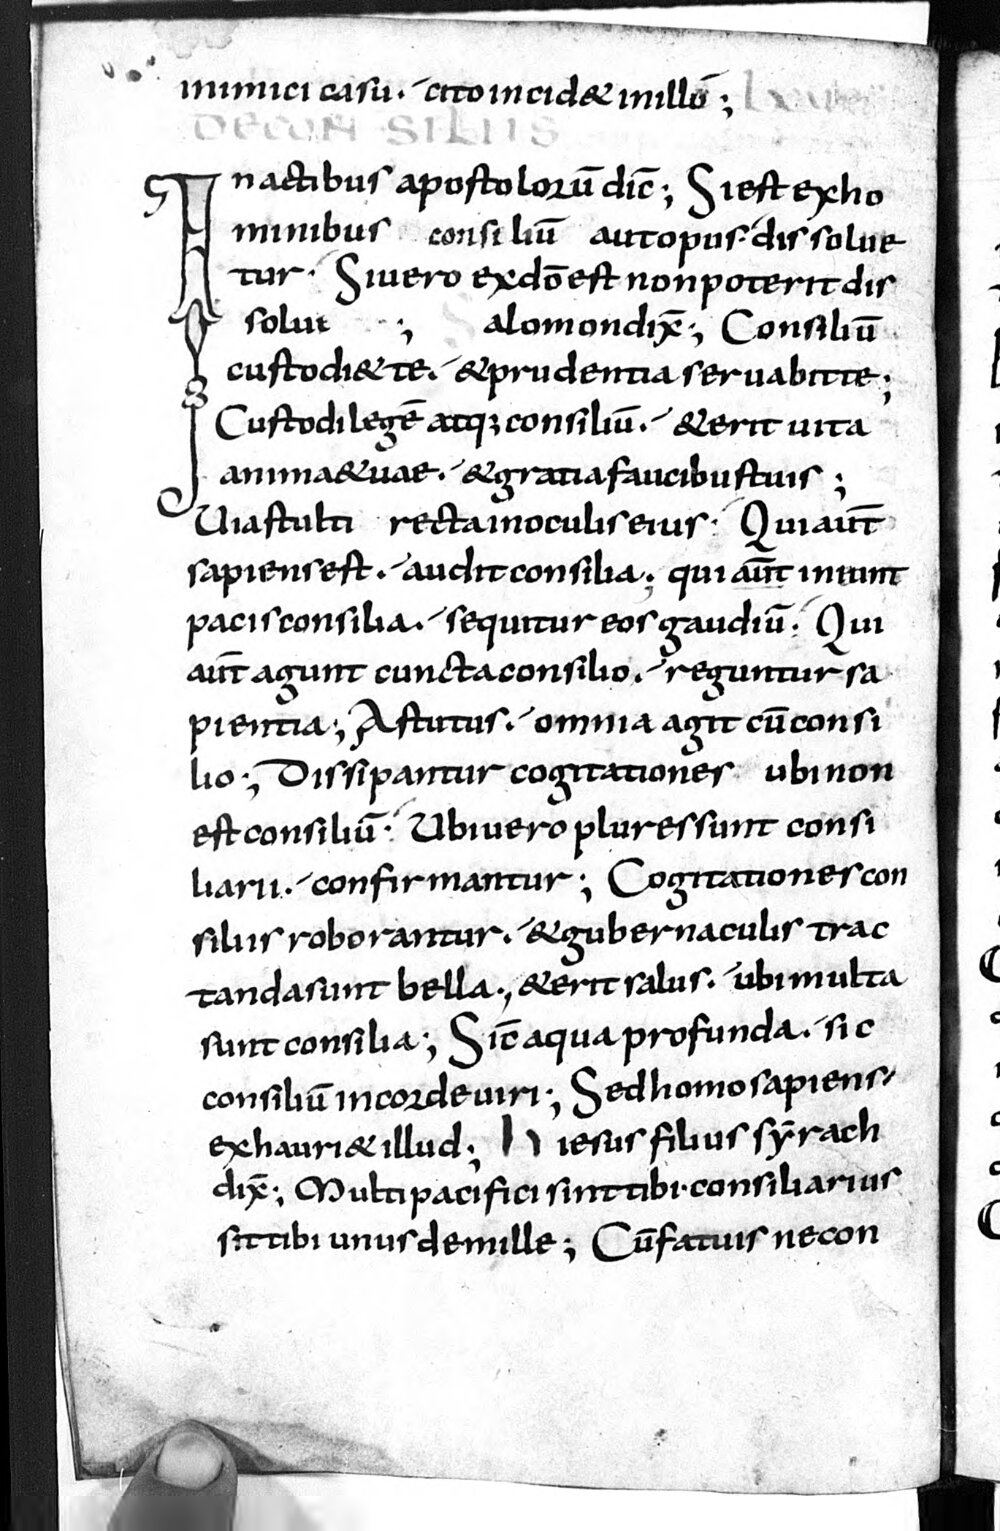 inimici casu. cito incid& inillū;
DE CONSILIIS
In actibus apostolorū dic̄; Si est exho
minibus consiliū aut opus dissolue
tur. Si vero ex dō est non poterit dis
solui ; Salomon dix̄; Consiliū
custodi& te. & prudentia servabit te;
Custodi legē atq; consiliū. & erit vita
anima& uae. & gratia faucibus tuis;
Via stulti recta in oculis eius. Qui aūt
sapiens est. audit consilia; qui aūt ineunt
pacis consilia. sequitur eos gaudiū. Qui
aūt agunt cuncta consilio. reguntur sa
pientia; Astutus. omnia agit cū consi
lio; Dissipantur cogitationes ubi non
est consiliū. Ubi vero plures sunt consi
liarii. confirmantur; Cogitationes con
siliis roborantur. & gubernaculis trac
tanda sunt bella. & erit salus. ubi multa
sunt consilia; Sic̄ aqua profunda. sic
consiliū in corde viri; Sed homo sapiens
exhauri& illud; h iesus filius syrach
dix̄; Multi pacifici sint tibi. consiliarius
sit tibi unus de mille; Cū fatuis ne con